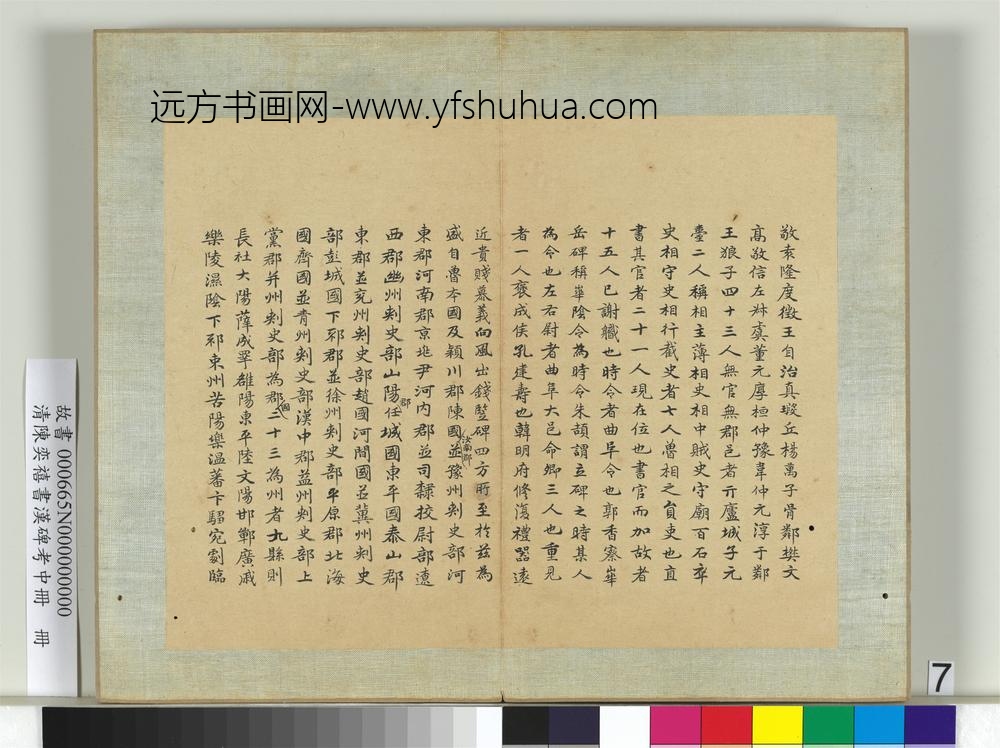 远方书画网-www.yfshuhua.com
敬索隆度徵王自治真璇丘楊萬子脅鄰樊文
高敬信左尉虞董元厚桓仲豫韋仲元淳于鄰
王狼子四十三人無官無郡邑者亓廬城子元
臺二人稱相主薄相史相中賊史守廟百石卒
史相守史相行義史者七人魯相之負吏也直
書其官者二十一人現在位也書官而加故者
十五人已謝職也時令者曲阜令也郭香察崋
岳碑稱崋陰令為時令朱頡謂立碑之時某人
為令也左右尉者曲阜大邑命卿三人也重見
者一人襃成侯孔建壽也韓明府修復禮器遠
近貴賤慕義向風出錢豎碑四方所至於兹為
盛自魯本國及穎川郡陳國汝南郡並豫州刺史部河
東郡河南郡京兆尹河內郡並司隸校尉部遼
西郡幽州刺史部山陽郡任城國東平國泰山郡
東郡並兖州刺史部趙國河間國並冀州刺史
部彭城國下邳郡並徐州刺史部平原郡北海
國齊國並青州刺史部漢中郡益州刺史部上
黨郡并州刺史部為郡國二十三為州者九縣則
長社大陽薛成睪雒陽東平陸文陽邯鄲廣戚
樂陵濕陰下邳東州苦陽樂溫蕃卞騶宛劇臨
故書 000665N000000000
清陳奕禧書漢碑考中冊 冊
7